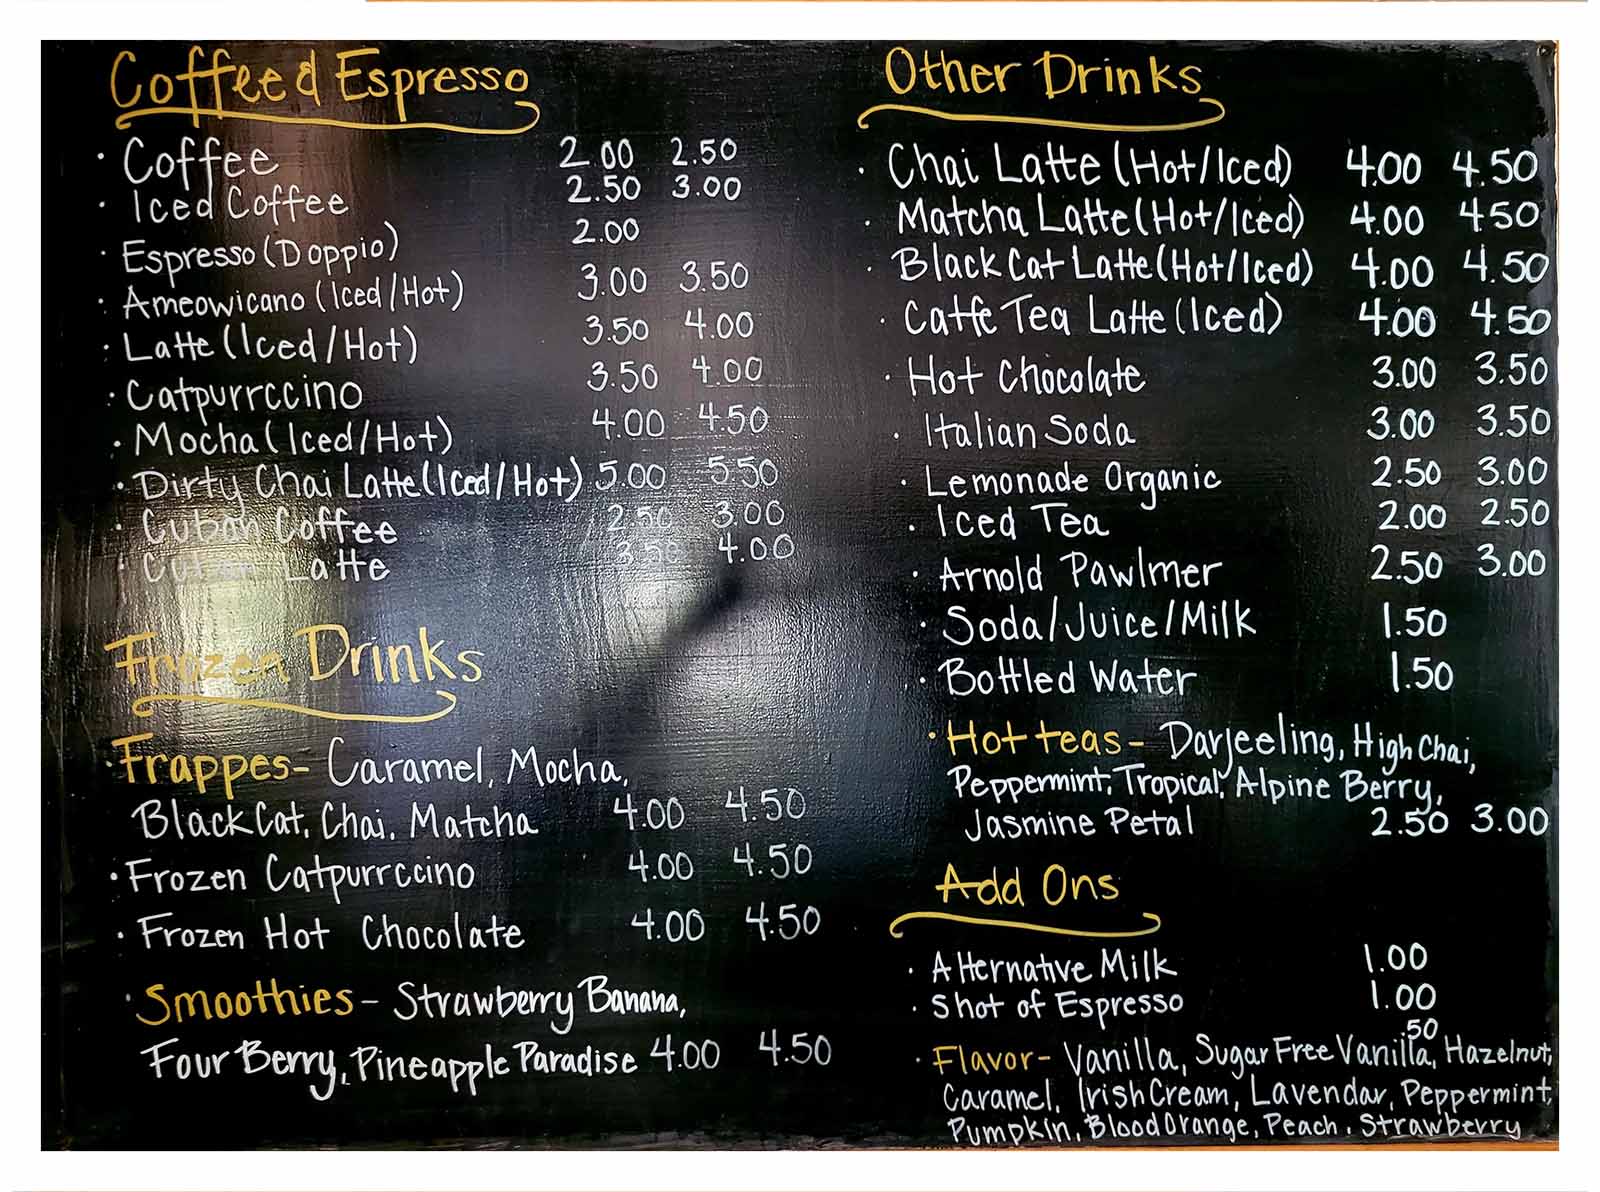 Coffee & Espresso
· Coffee 2.00 2.50
· Iced Coffee 2.50 3.00
· Espresso (Doppio) 2.00
· Ameowicano (Iced/Hot) 3.00 3.50
· Latte (Iced/Hot) 3.50 4.00
· Catpurrccino 3.50 4.00
· Mocha (Iced/Hot) 4.00 4.50
· Dirty Chai Latte (Iced/Hot) 5.00 5.50
· Cuban Coffee 2.50 3.00
· Cuban Latte 3.50 4.00
Frozen Drinks
· Frappes- Caramel, Mocha,
Black Cat, Chai, Matcha 4.00 4.50
· Frozen Catpurrccino 4.00 4.50
· Frozen Hot Chocolate 4.00 4.50
· Smoothies - Strawberry Banana,
Four Berry, Pineapple Paradise 4.00 4.50
Other Drinks
· Chai Latte (Hot/Iced) 4.00 4.50
· Matcha Latte (Hot/Iced) 4.00 4.50
· Black Cat Latte (Hot/Iced) 4.00 4.50
· Catfe Tea Latte (Iced) 4.00 4.50
· Hot Chocolate 3.00 3.50
· Italian Soda 3.00 3.50
· Lemonade Organic 2.50 3.00
· Iced Tea 2.00 2.50
· Arnold Pawlmer 2.50 3.00
· Soda/Juice/Milk 1.50
· Bottled Water 1.50
· Hot teas - Darjeeling, High Chai,
Peppermint, Tropical, Alpine Berry,
Jasmine Petal 2.50 3.00
Add Ons
· Alternative Milk 1.00
· Shot of Espresso 1.00
.50
· Flavor- Vanilla, Sugar Free Vanilla, Hazelnut,
Caramel, Irish Cream, Lavendar, Peppermint,
Pumpkin, Blood Orange, Peach, Strawberry